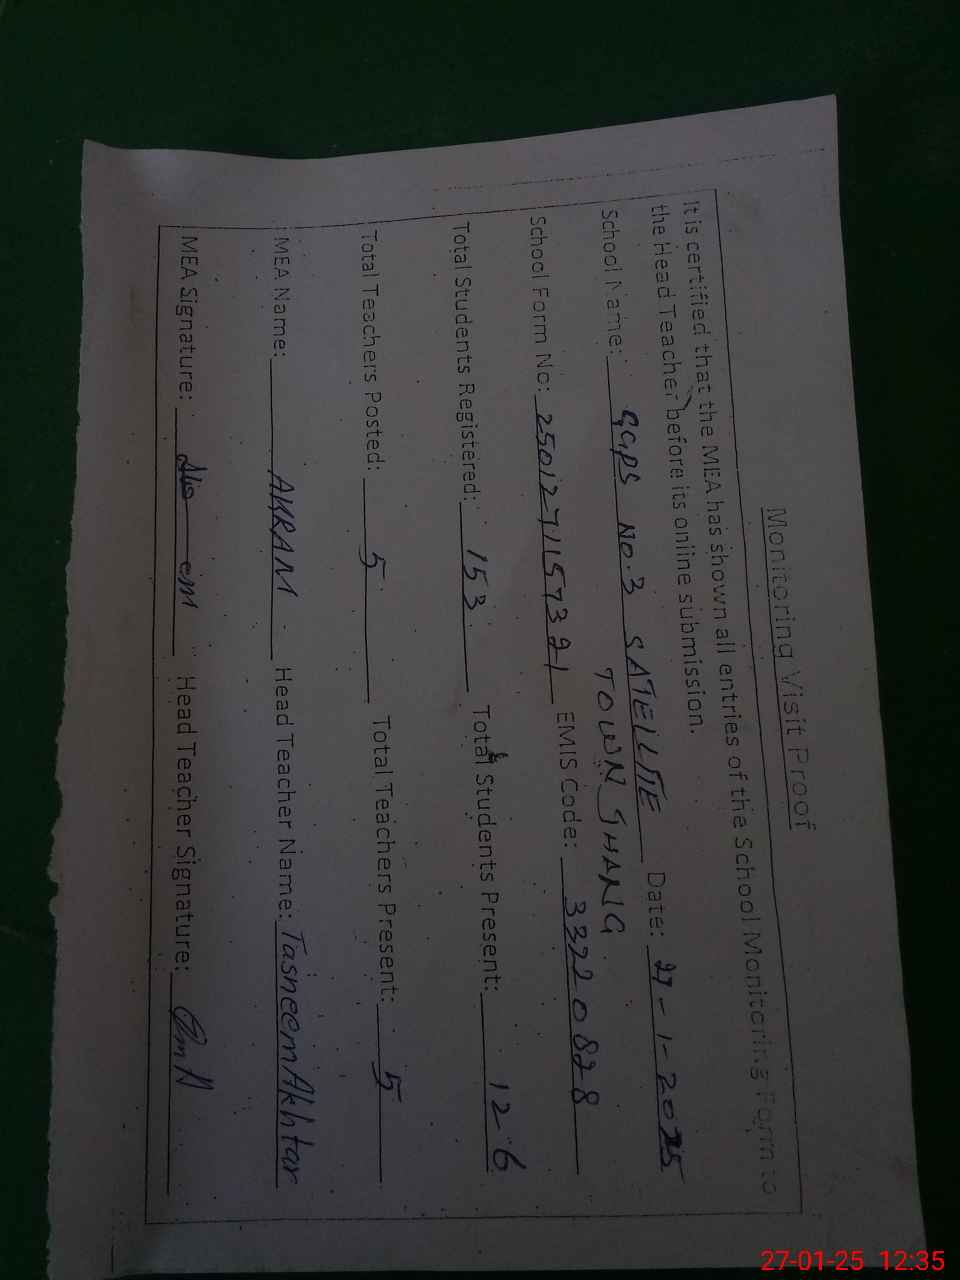 Monitoring Visit Proof
It is certified that the MEA has shown all entries of the School Monitoring Form to
the Head Teacher before its online submission.
School Name: GGPS NO.3 SATEILTIE Date: 27-1-2025
TOWN JHANG
School Form No: 2501271157321 EMIS Code: 33220828
Total Students Registered: 153 Total Students Present: 126
Total Teachers Posted: 5 Total Teachers Present: 5
MEA Name: AKRAM Head Teacher Name: Tasneem Akhtar
MEA Signature: Head Teacher Signature:
27-01-25 12:35